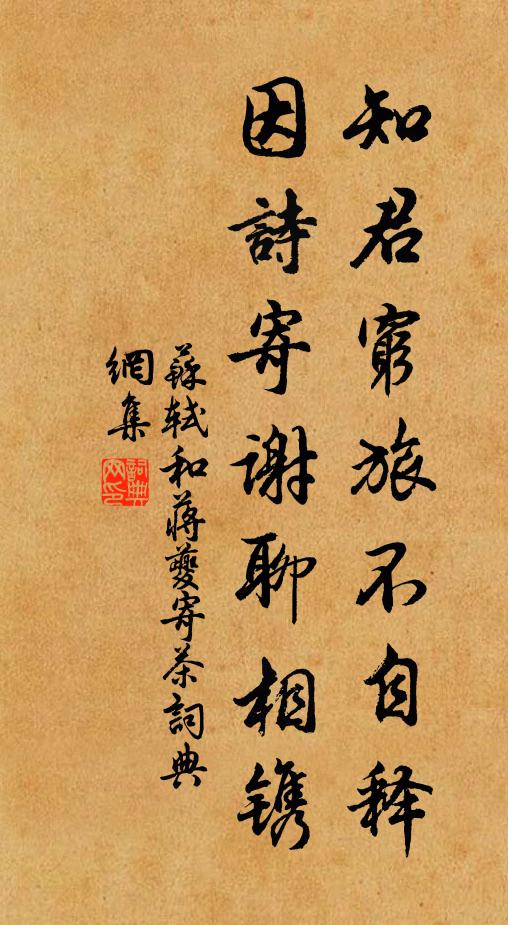 知君窮旅不自释
因詩寄謝聊相镌
蘇軾和蔣夔寄茶詞典
網集
詞典網印